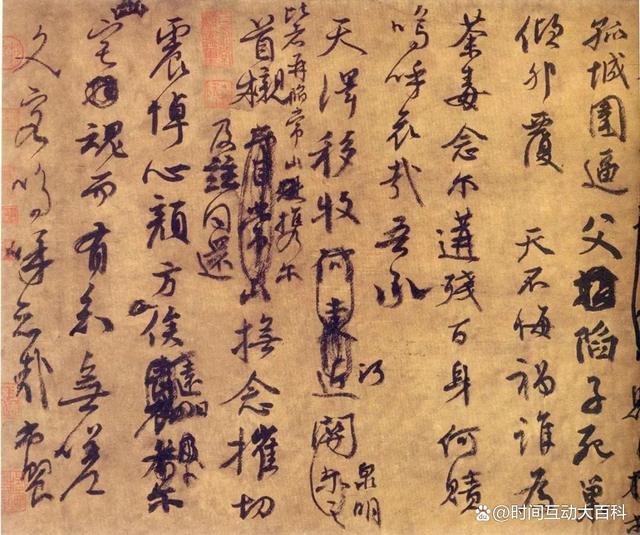 孤城圍逼父陷子死巢
傾卵覆天不悔禍誰為
荼毒念尔遘殘百身何贖
嗚呼哀哉吾承
天澤移牧河東近河關尔之
泉明
比者再陷常山携尔
首櫬亦自常山撫念摧切
及茲同還
震悼心顏方俟
遠日卜尔
宅魂而有知無嗟
久客嗚呼哀哉尚饗
@时间互动大百科